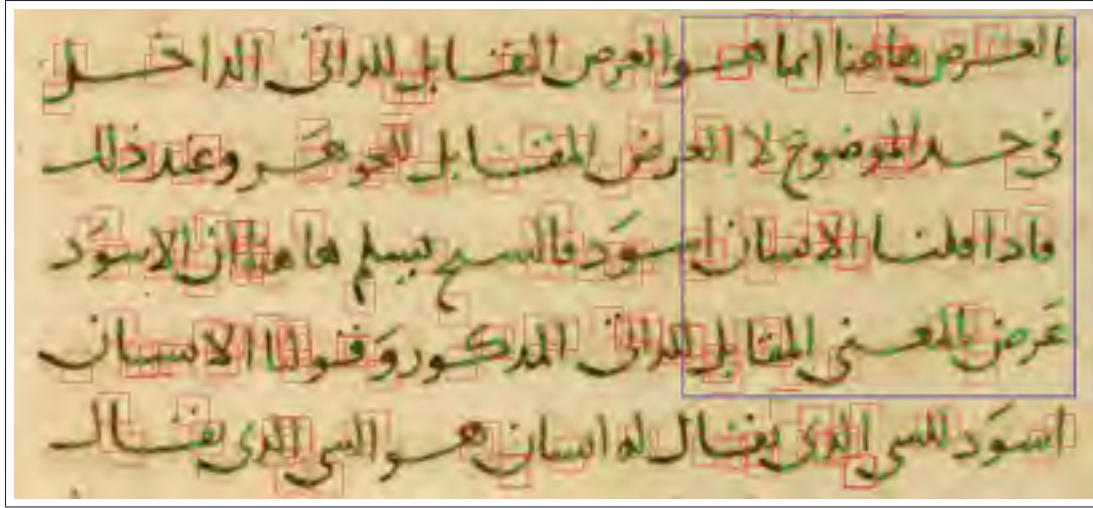 بالعرض هاهنا انما هو العرض المقابل للداتى الداخل
فى حد الموضوع لا العرض المقابل للجوهر وعند ذلك
فاذا قلنا الانسان اسود فالشيخ يسلم هاهنا ان الاسود
عرض بالمعنى المقابل للداتى المدكور وقولنا الانسان
اسود للشى الدى يقال له انسان هو الشى الدى يقال